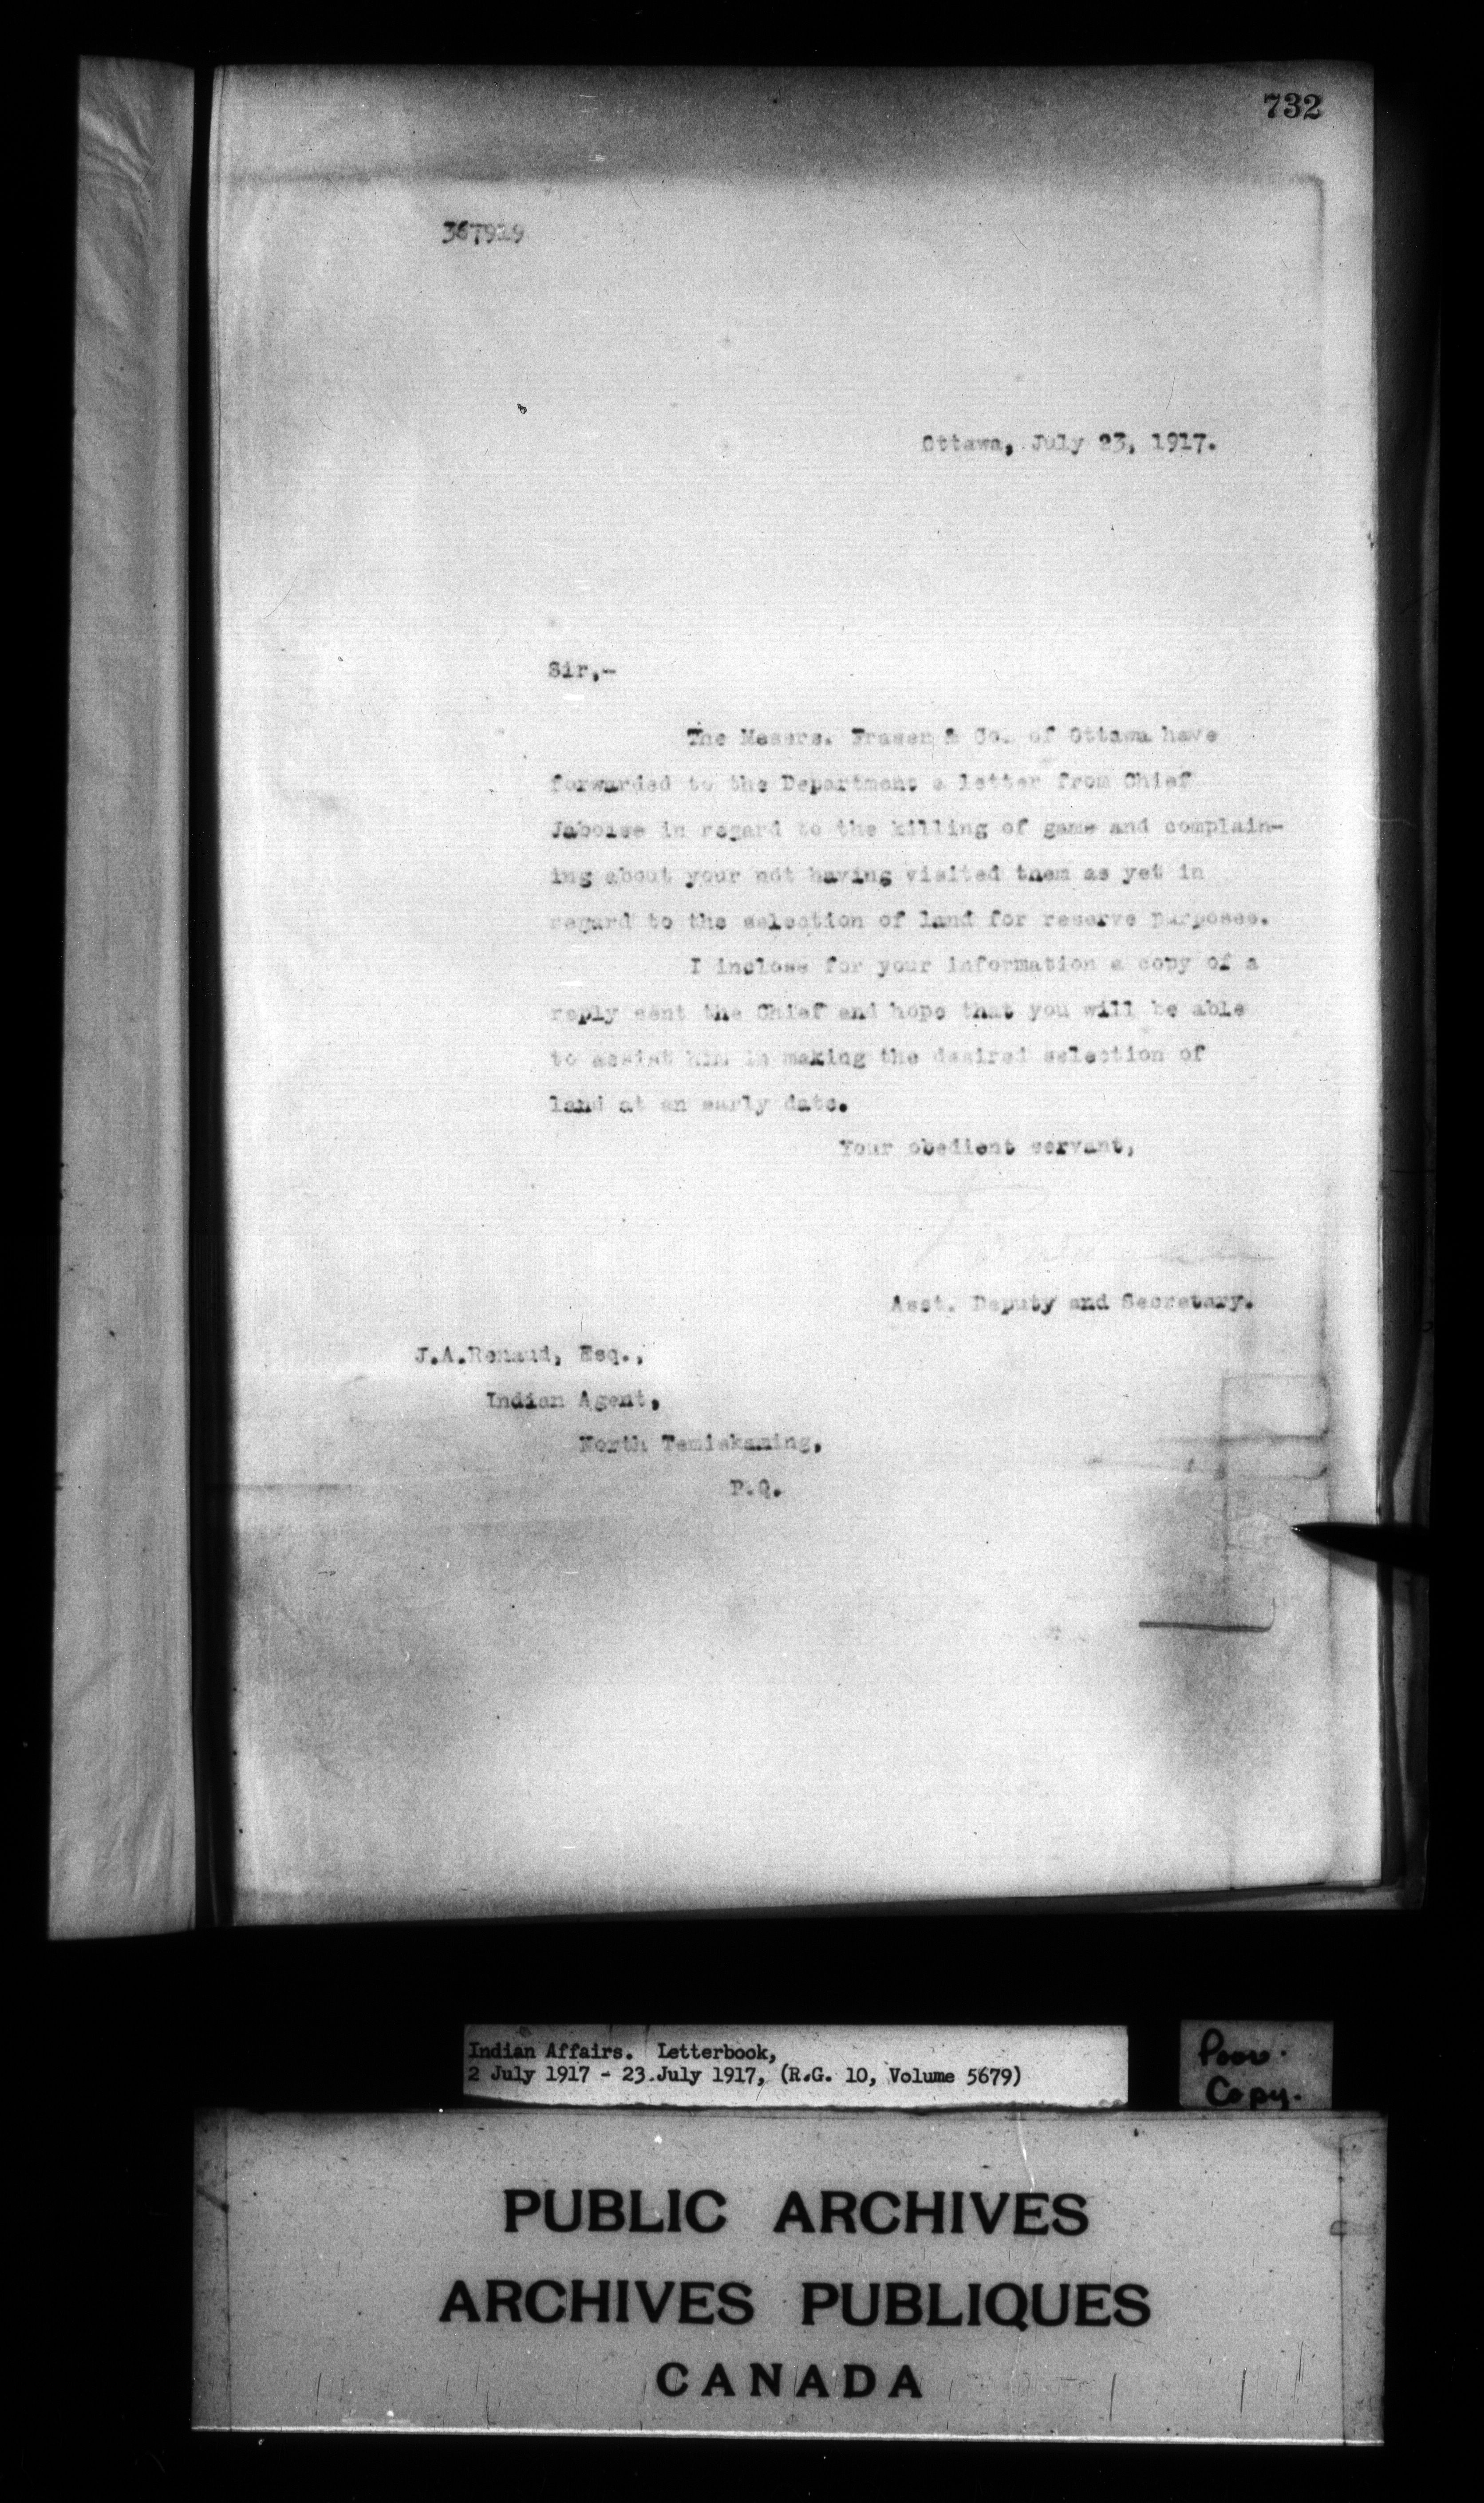 732
367929
Ottawa, July 23, 1917.
Sir,-
The Messrs. Fraser & Co. of Ottawa have
forwarded to the Department a letter from Chief
Jaboise in regard to the killing of game and complain-
ing about your not having visited them as yet in
regard to the selection of land for reserve purposes.
I inclose for your information a copy of a
reply sent the Chief and hope that you will be able
to assist him in making the desired selection of
land at an early date.
Your obedient servant,
Asst. Deputy and Secretary.
J.A.Renaud, Esq.,
Indian Agent,
North Temiskaming,
P.Q.
Indian Affairs. Letterbook,
2 July 1917 - 23 July 1917, (R.G. 10, Volume 5679)
Poor
Copy.
PUBLIC ARCHIVES
ARCHIVES PUBLIQUES
CANADA